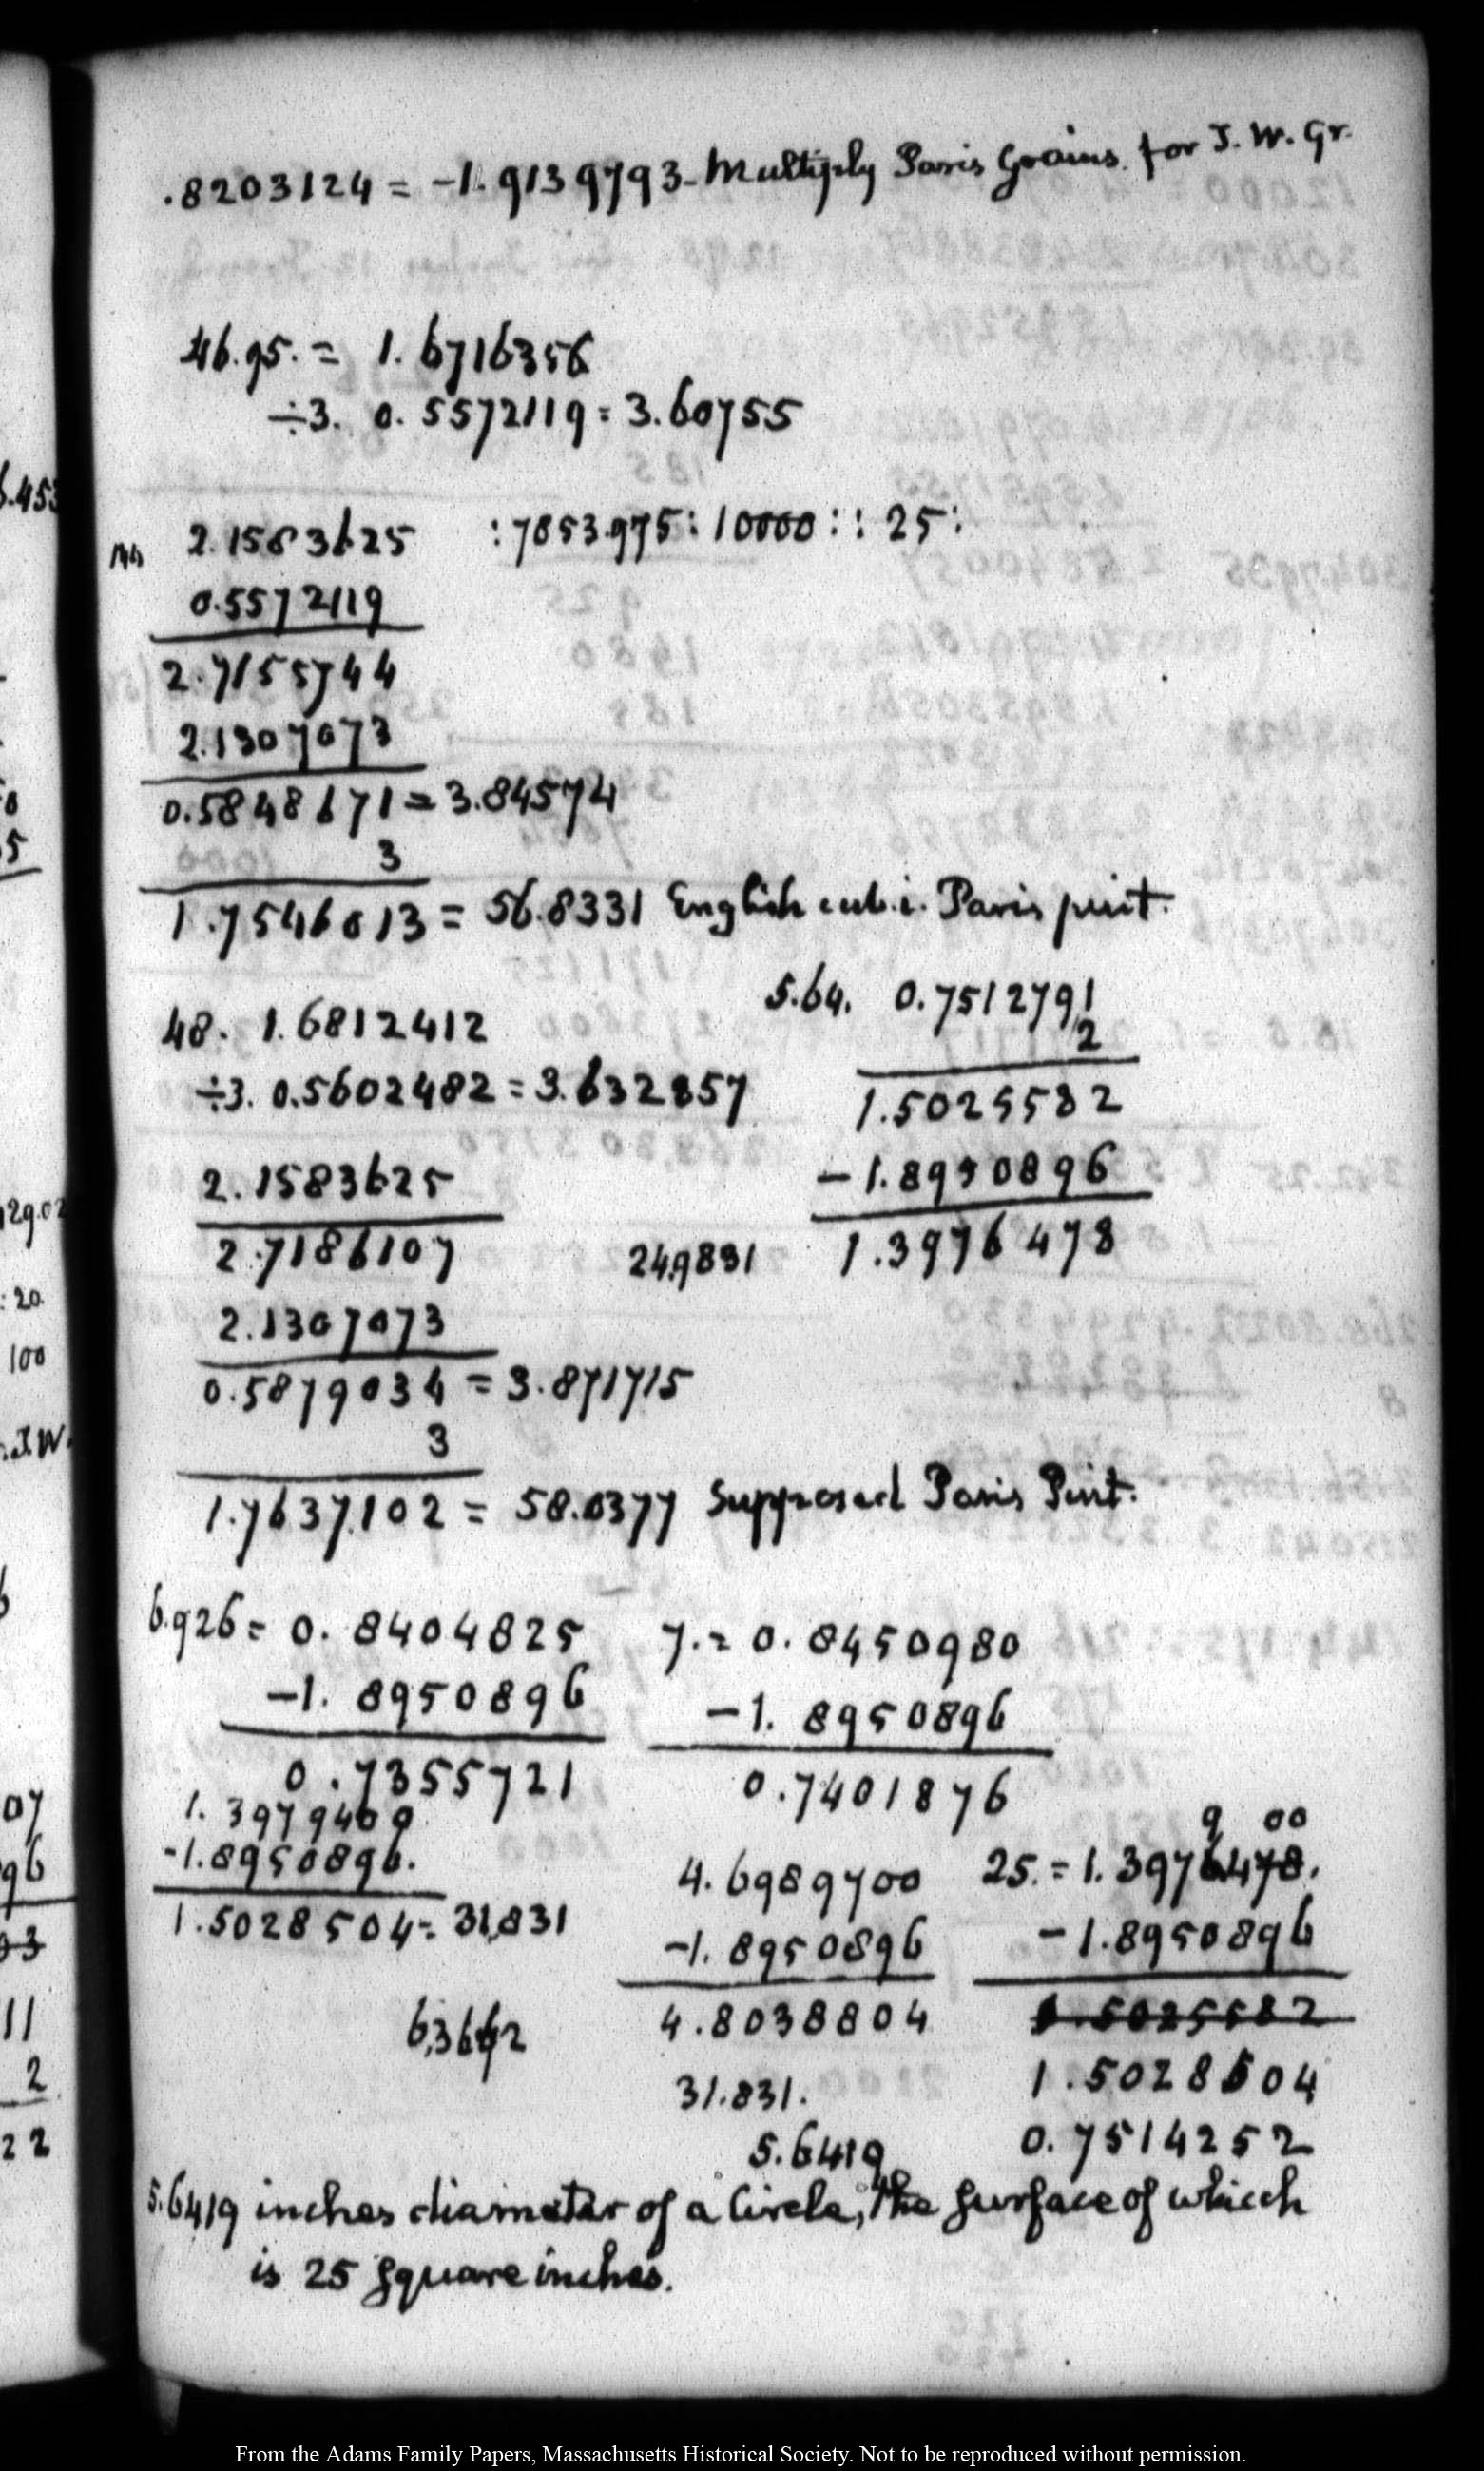 .8203124 = -1.9139793- Multiply Paris Grains. for T. W. Gr.
46.95. = 1.6716356
÷3. 0.5572119 = 3.60755
2.1583625 :7853.975:10000::25:
0.5572119
2.7155744
2.1307073
0.5848671 = 3.84574
3
1.7546013 = 56.8331 English cub. i. Paris pint.
48. 1.6812412
÷3. 0.5602482 = 3.632857
2.1583625
2.7186107
2.1307073
0.5879034 = 3.871715
3
1.7637102 = 58.0377 Supposed Paris Pint.
5.64. 0.7512791
2
1.5025582
-1.8950896
249831 1.3976478
6.926 = 0.8404825
-1.8950896
0.7355721
7. = 0.8450980
-1.8950896
0.7401876
1.3979400
-1.8950896.
1.5028504 = 31,831
6,3662
4.6989700
-1.8950896
4.8038804
31.831.
5.6419
9 00
25. = 1.3976478.
-1.8950896
1.5025582
1.5028504
0.7514252
5.6419 inches diameter of a Circle, the surface of which
is 25 square inches.
6.453
129.02
: 20.
100
07
96
03
11
2
22
From the Adams Family Papers, Massachusetts Historical Society. Not to be reproduced without permission.